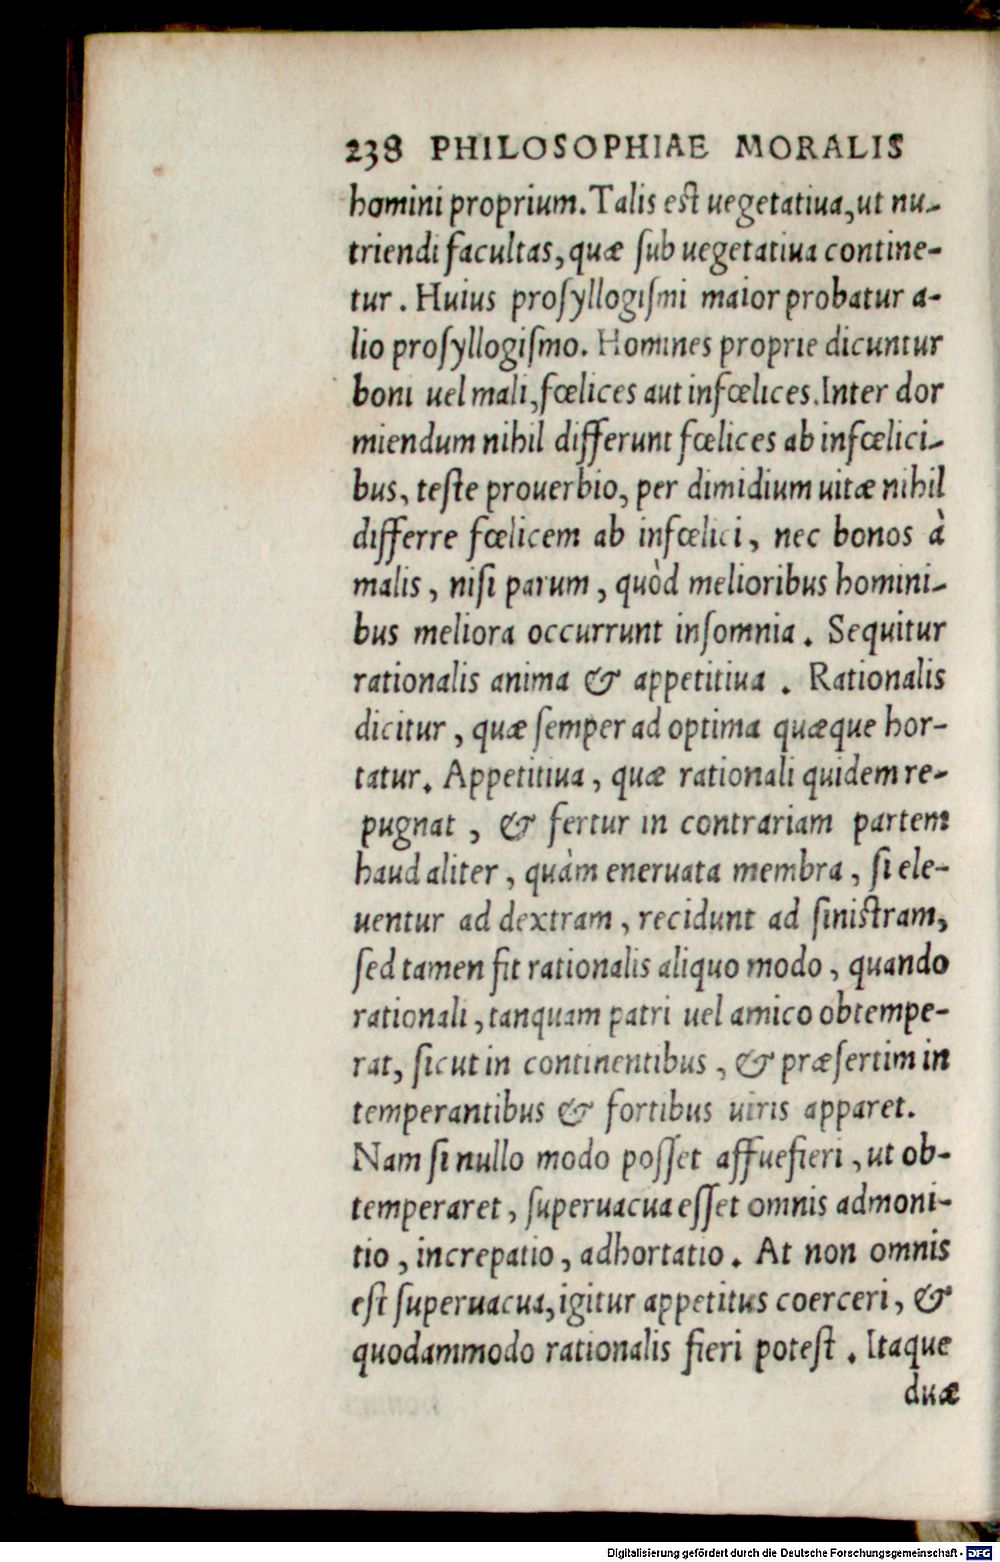 238 PHILOSOPHIAE MORALIS
homini proprium. Talis est uegetatiua, ut nu-
triendi facultas, quæ sub uegetatiua contine-
tur. Huius prosyllogismi maior probatur a-
lio prosyllogismo. Homines proprie dicuntur
boni uel mali, fœlices aut infœlices. Inter dor
miendum nihil differunt fœlices ab infœlici-
bus, teste prouerbio, per dimidium uitæ nihil
differre fœlicem ab infœlici, nec bonos à
malis, nisi parum, quòd melioribus homini-
bus meliora occurrunt insomnia. Sequitur
rationalis anima & appetitiua. Rationalis
dicitur, quæ semper ad optima quæque hor-
tatur. Appetitiua, quæ rationali quidem re-
pugnat, & fertur in contrariam partem
haud aliter, quàm eneruata membra, si ele-
uentur ad dextram, recidunt ad sinistram,
sed tamen fit rationalis aliquo modo, quando
rationali, tanquam patri uel amico obtempe-
rat, sicut in continentibus, & præsertim in
temperantibus & fortibus uiris apparet.
Nam si nullo modo posset affuefieri, ut ob-
temperaret, superuacua esset omnis admoni-
tio, increpatio, adhortatio. At non omnis
est superuacua, igitur appetitus coerceri, &
quodammodo rationalis fieri potest. Itaque
duæ
Digitalisierung gefördert durch die Deutsche Forschungsgemeinschaft - DFG